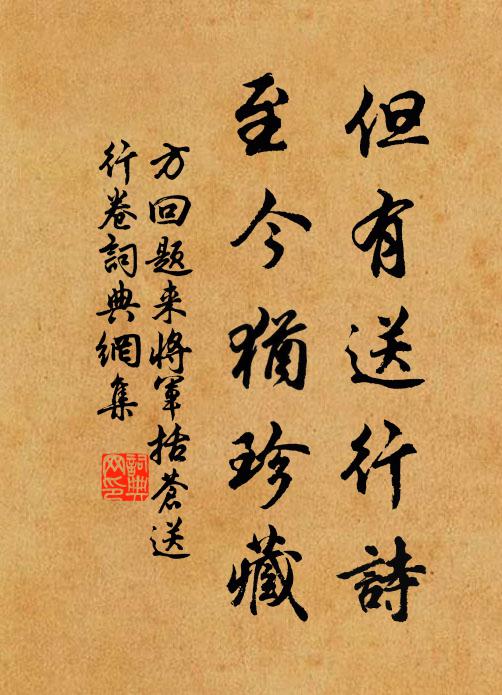 但有送行詩
至今猶珍藏
方回题来將軍括蒼送
行卷詞典網集
詞典
网印